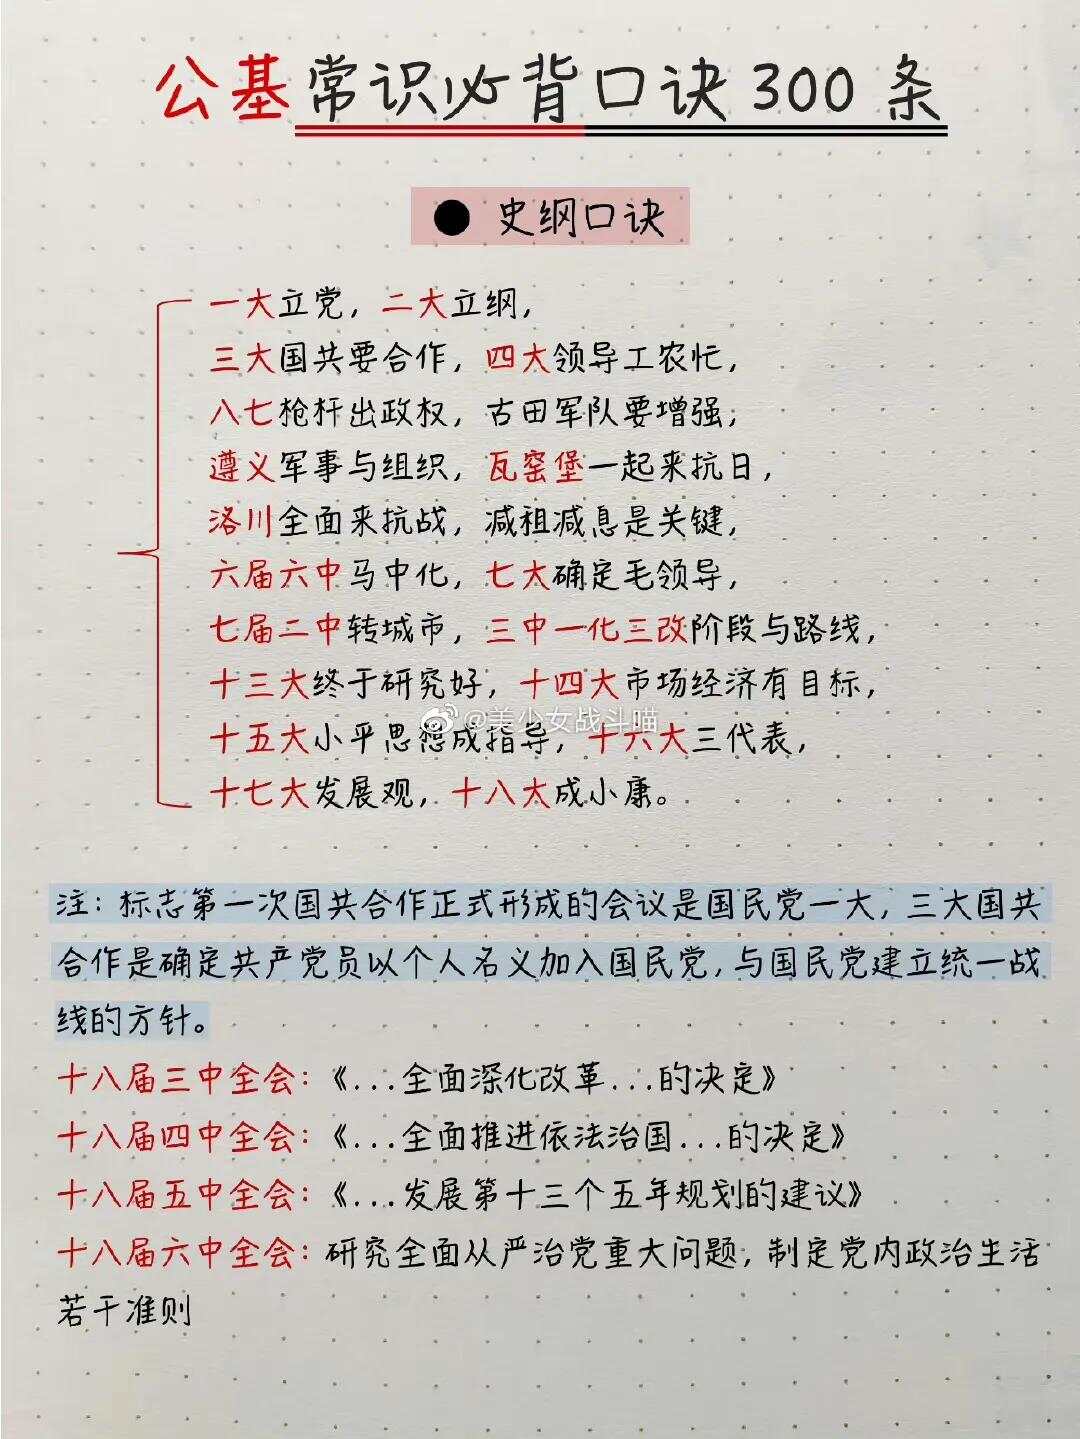 公基常识必背口诀300条
● 史纲口诀
一大立党，二大立纲，
三大国共要合作，四大领导工农忙，
八七枪杆出政权，古田军队要增强；
遵义军事与组织，瓦窑堡一起来抗日，
洛川全面来抗战，减租减息是关键，
六届六中马中化，七大确定毛领导，
七届二中转城市，三中一化三改阶段与路线，
十三大终于研究好，十四大市场经济有目标，
十五大小平思想成指导，十六大三代表，
@美少女战斗喵
十七大发展观，十八大成小康。
注：标志第一次国共合作正式形成的会议是国民党一大，三大国共
合作是确定共产党员以个人名义加入国民党，与国民党建立统一战
线的方针。
十八届三中全会：《...全面深化改革...的决定》
十八届四中全会：《...全面推进依法治国...的决定》
十八届五中全会：《...发展第十三个五年规划的建议》
十八届六中全会：研究全面从严治党重大问题，制定党内政治生活
若干准则